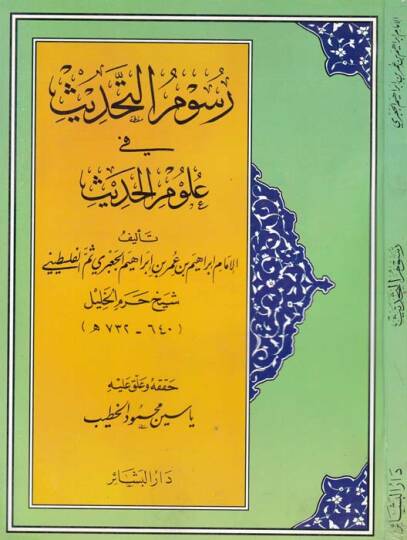 رُسُومُ التَّحْدِيثِ
فِي
عُلُومِ الحَدِيثِ
تأليف
الإمام إبراهيم بن عمر بن إبراهيم الجعبري ثم الفلسطيني
شيخ حرم الخليل
(٦٤٠ - ٧٣٢ هـ)
حققه وعلق عليه
ياسين محمود الخطيب
دار البشائر
الإمام إبراهيم بن عمر بن إبراهيم الجعبري
رسوم التحديث
دار البشائر